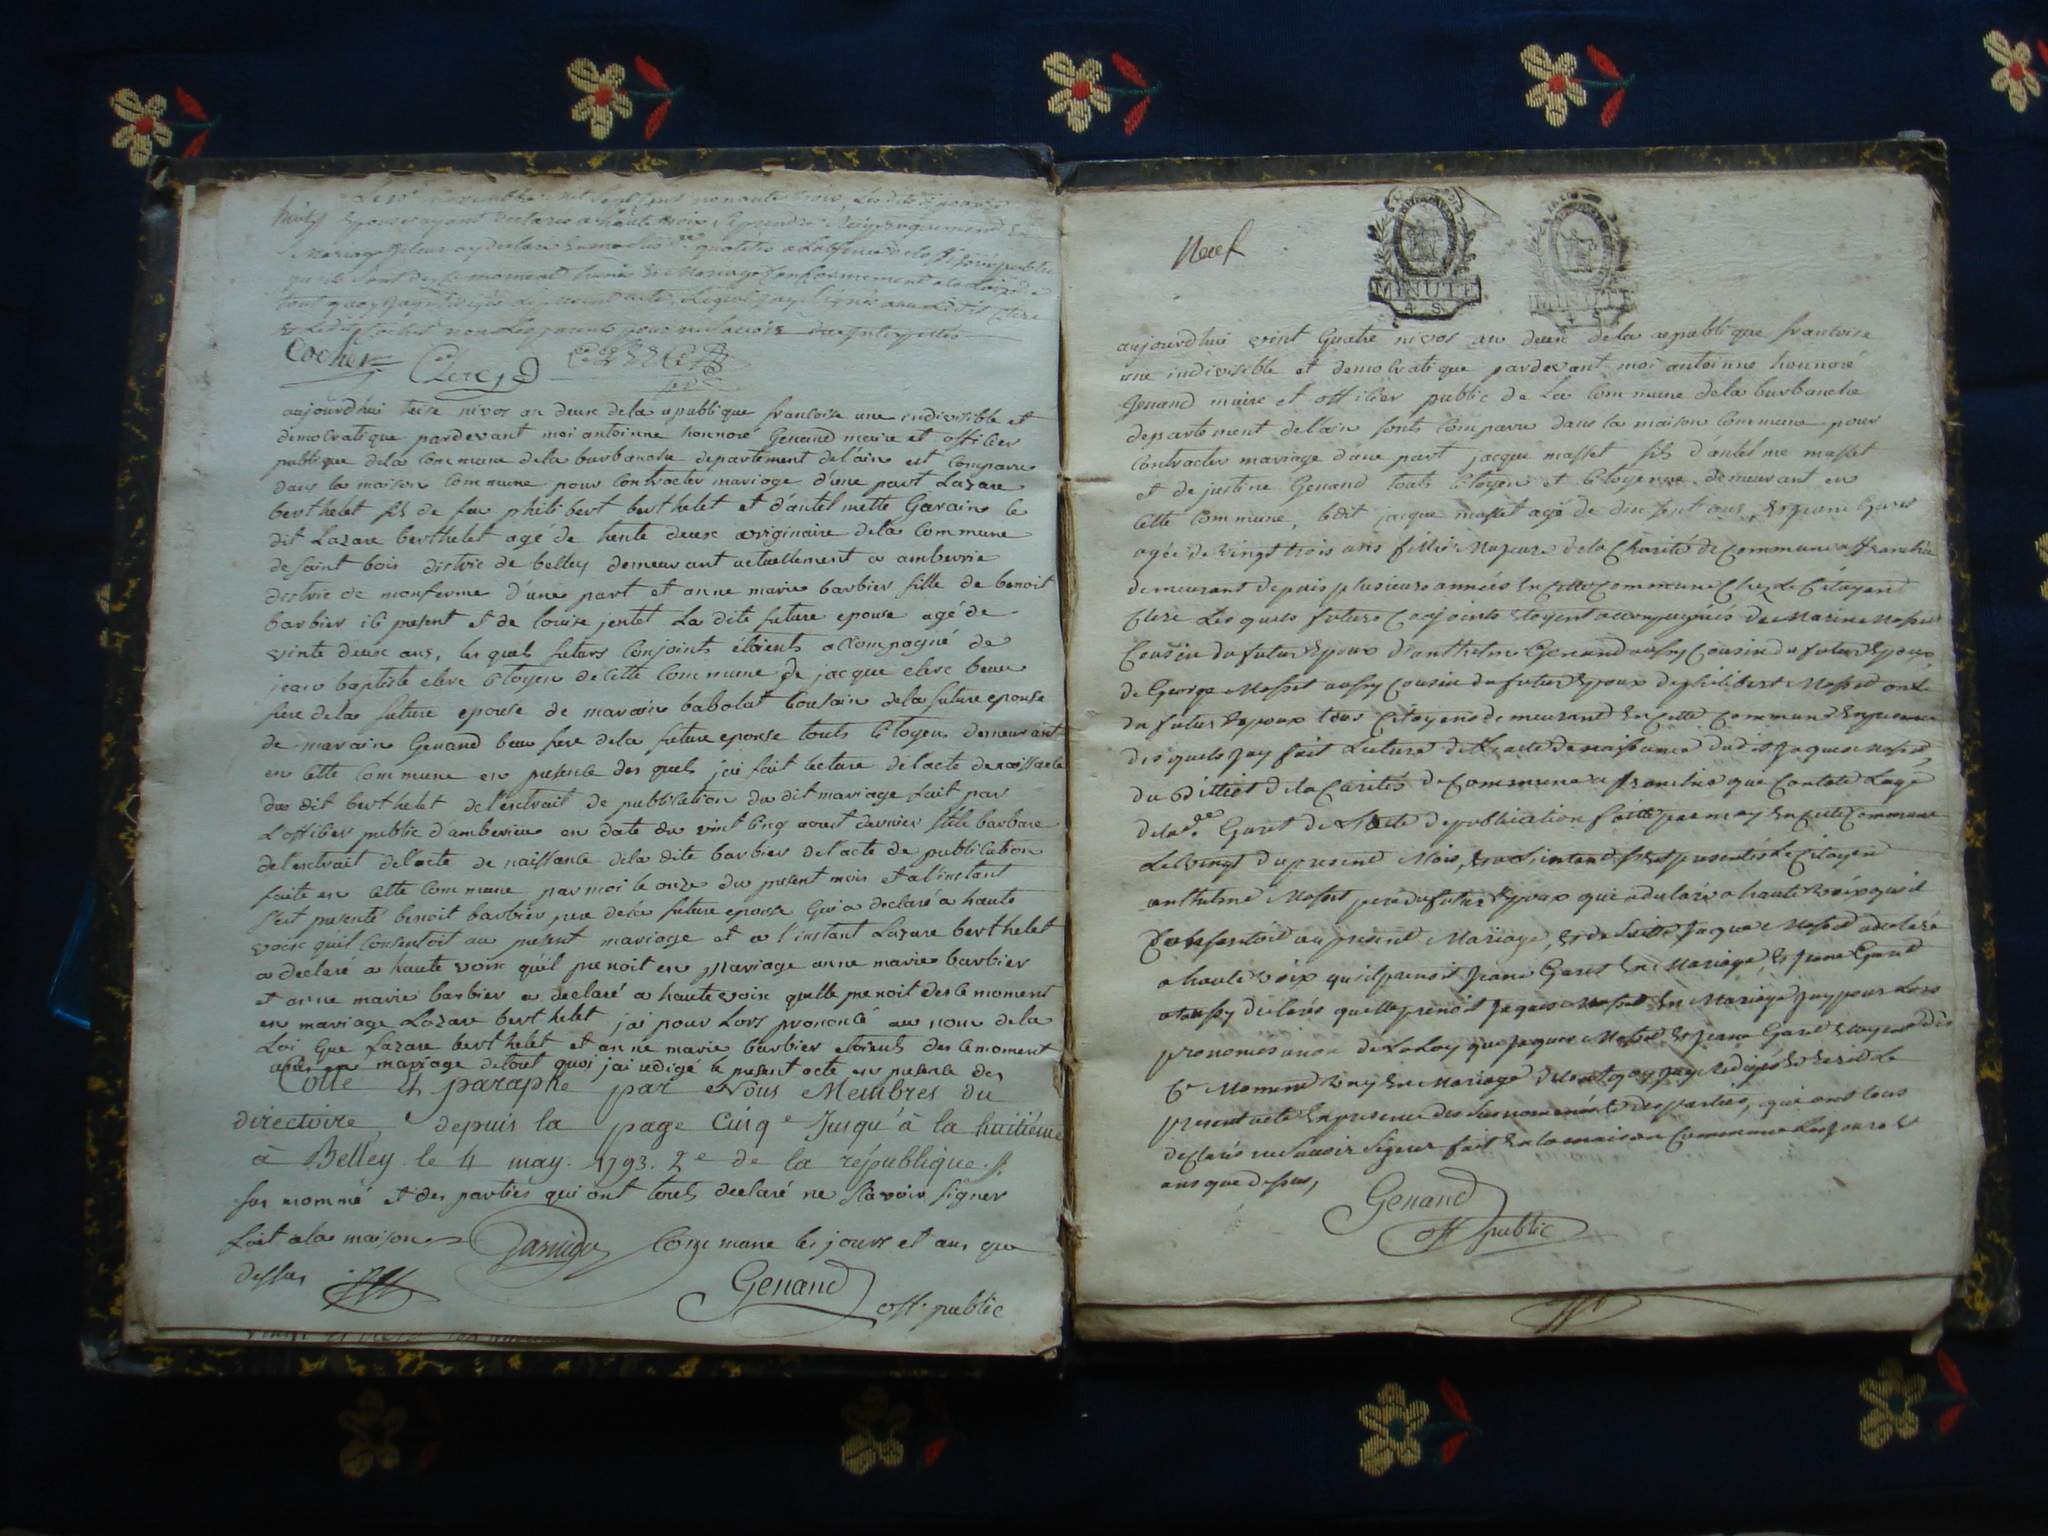 huit
époux ayant déclarés a haute voix
Mariage
tout quoy
Cochet Clerc
aujourdhui teise nivos an deux dela republique francoise une indivisible et
démocratique pardevant moi antoinne honnoré Genand maire et offilier
publique dela commune dela burbanche departement de l'ain est comparu
dans la maison commune pour contracter mariage d'une part Lazare
berthelet fils de feu philibert berthelet et d'antelmette Gavain le
dit Lazare berthelet agé de trente deux originaire dela commune
de saint bois distric de belley demeurant actuellement a amberrie
distric de monferme d'une part et anne marie barbier fille de benoit
barbier ici present et de louise jentet la dite future epouse agé de
vinte deux ans, les quels futurs conjoints étoients accompagné de
jean baptiste clerc citoyen de cette commune de jacque clerc beau
frere dela future epouse de marain babolat cousain dela future epouse
de marain Genand beau frere dela future eponse touts citoyens demeurant
en cette commune en presence des quels j'ai fait lecture de l'acte de naissance
du dit berthelet de l'extrait de publication du dit mariage fait par
l'offilier public d'amberieu en date du vint cinq aoust dernier stile barbare
de l'extrait de l'acte de naissance dela dite barbier de l'acte de publication
faite en cette commune par moi le onze du present mois et a l'instant
s'est presenté benoit barbier pere dela future eponse qui a declaré a haute
voix qu'il consentoit au present mariage et a l'instant Lazare berthelet
a declaré a haute voix qu'il prenoit en mariage anne marie barbier
et anne marie barbier a declaré a haute voix quelle prenoit des ce moment
en mariage Lazare berthelet j'ai pour lors prononcé au nom dela
Loi que Lazare berthelet et anne marie barbier etoients des ce moment
unis en mariage de tout quoi j'ai redigé le present acte en presence des
Cotté & paraphé par Nous Membres du
directoire, depuis la page Cinq.e Jusqu'à la huitiéme
à Belley le 4 may. 1793. 2e de la république.
sus nommé et des parties qui ont touts declaré ne scavoir signer
fait a la maison commune les jours et ans que
dessus
Genand
off. public
Neuf
MINUTE
4 S
MINUTE
aujourdhui vint quatre nivos an deux dela republique francoise
une indivisible et democratique pardevant moi antoinne honnoré
Genand maire et offilier public de la commune dela burbanche
departement de l'ain sonts comparu dans la maison commune pour
contracter mariage d'une part jacque masset fils d'antelme masset
et de justine Genand touts citoyen et citoyenne demeurant en
cette commune, ledit jacque masset agé de dix sept ans, et jeane Garet
agée de vingt trois ans fille Majeure de la Charité de Commune affranchie
demeurant depuis plusieurs années en cette Commune Chez le Citoyen
Clerc Lesquels futurs Conjoints étoyent accompagnés de Marin Masset
Cousin du futur Epoux d'anthelme Genand aussy Cousin du futur Epoux,
de George Masset aussy Cousin du futur Epoux de philibert Masset oncle
du futur Epoux tous Citoyens demeurand en cette Commune en presence
desquels jay fait Lecture de L'acte de naissance dudit Jaques Masset,
du Billiet de la Carités de Commune affranchie que Constate Lage
de lade Garet de L'acte de publication faitte par moy en cette Commune
Le Vingt du present Mois, et a L'instand s'est presentés Le Citoyen
anthelme Masset pere du futur Epoux que a declaré a haute voix qu'il
Consentoit au present Mariage, et de suitte Jaque Masset a declaré
a haute voix qu'il prenoit Jeane Garet En Mariage, et Jeane Garet
a aussy declarés quelle prenoit Jaques Masset En Mariage jay pour Lors
prononcés au nom de La Loy que Jaques Masset et Jeane Garet étoyent dès
Ce Moment Unis En Mariage de tout quoy jay Redigés le
present acte En presence des susnommés et des parties, qui ont tous
declarés ne savoir signer fait En la maison Commune les jours et
ans que dessus,
Genand
off public